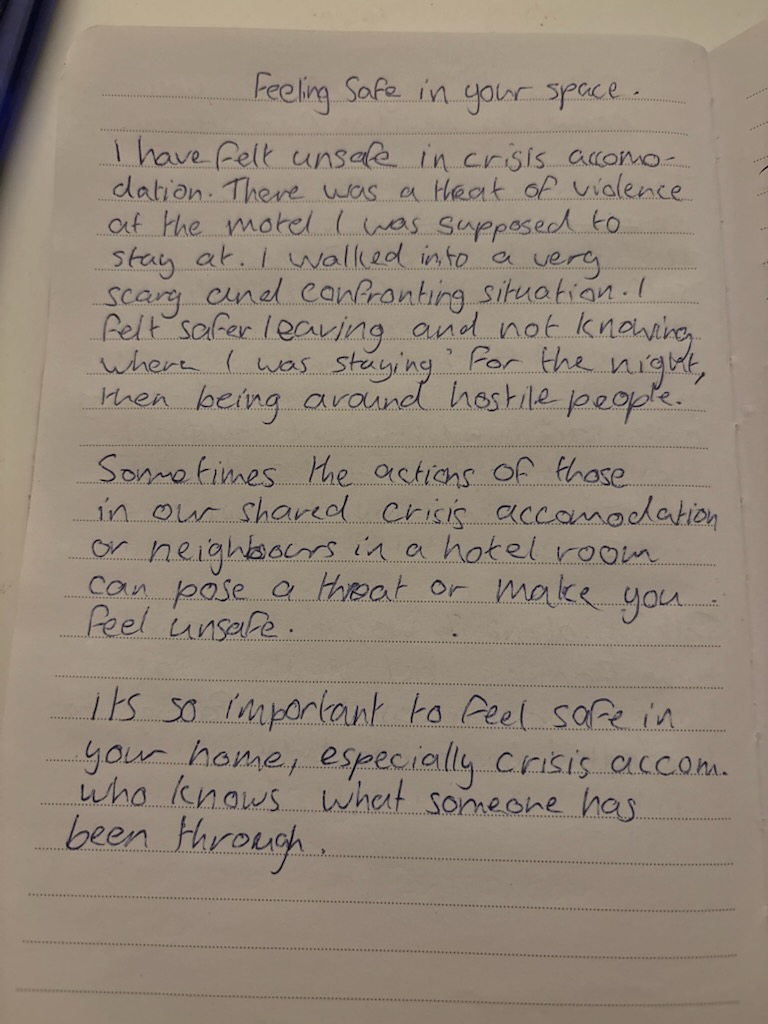 Feeling Safe in your space.
I have felt unsafe in crisis accomo-
dation. There was a theat of violence
at the motel I was supposed to
stay at. I walked into a very
scary and confronting situation. I
felt safer leaving and not knowing
where I was staying for the night,
then being around hostile people.
Sometimes the actions of those
in our shared crisis accomodation
or neighbours in a hotel room
can pose a threat or make you
feel unsafe.
Its so important to feel safe in
your home, especially crisis accom.
who knows what someone has
been through.